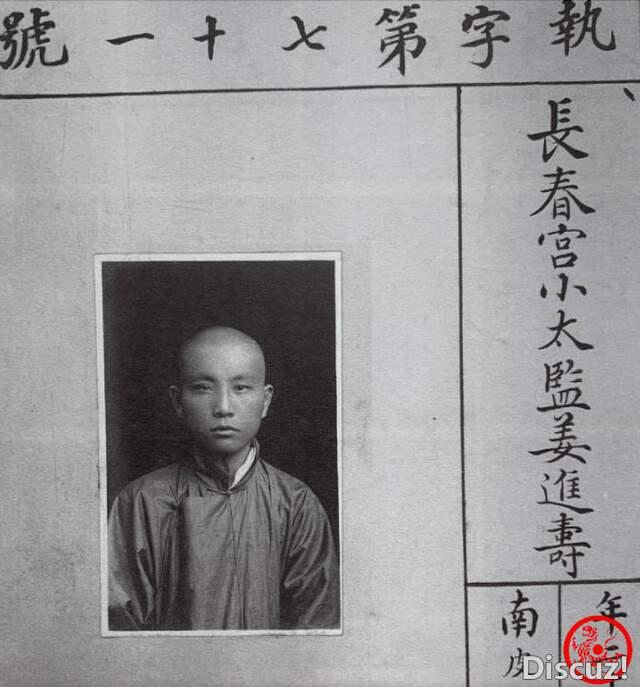 執字第七十一號
長春宮小太監姜進壽
年
南皮
Discuz!